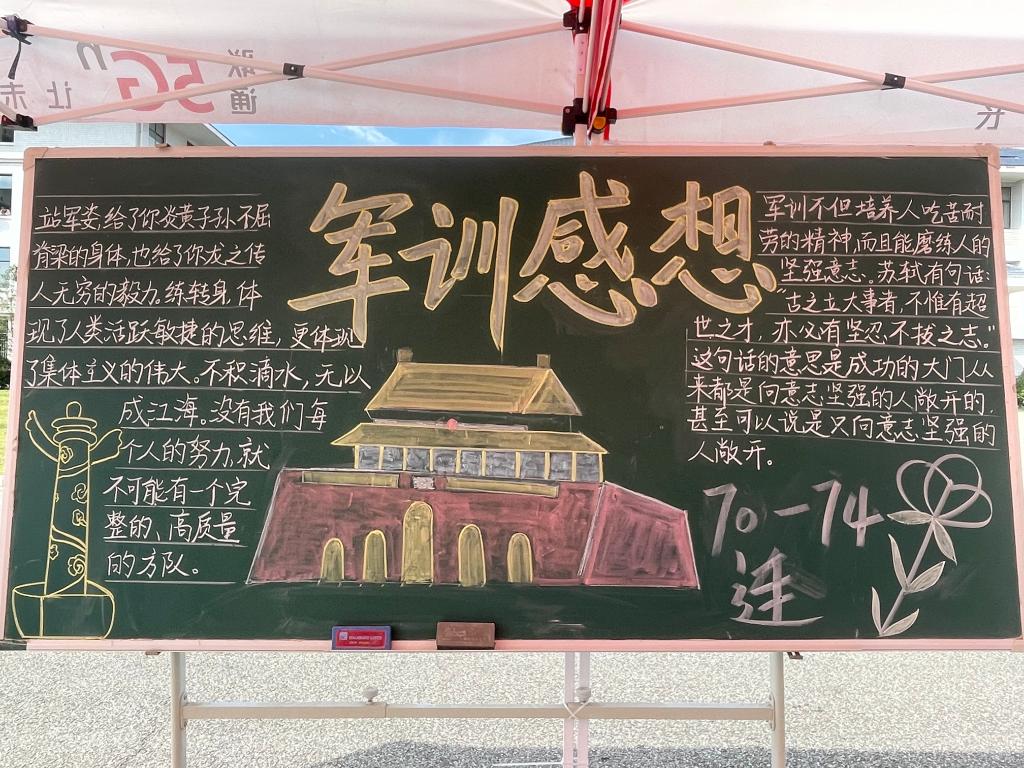 军训感想
站军姿给了你炎黄子孙不屈
脊梁的身体,也给了你龙之传
人无穷的毅力。练转身,体
现了人类活跃敏捷的思维,更体现
了集体主义的伟大。不积滴水,无以
成江海。没有我们每
个人的努力,就
不可能有一个完
整的、高质量
的方队。
军训不但培养人吃苦耐
劳的精神,而且能磨练人的
坚强意志。苏轼有句话:
"古之立大事者,不惟有超
世之才,亦必有坚忍不拔之志。"
这句话的意思是成功的大门从
来都是向意志坚强的人敞开的,
甚至可以说是只向意志坚强的
人敞开。
70-74
连
5Gⁿ
让未
联通